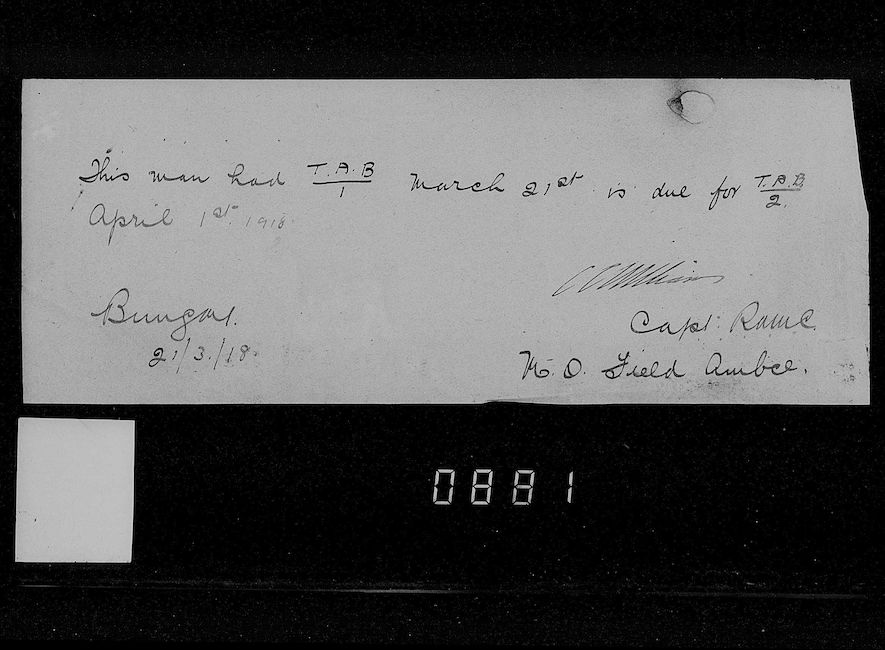 This man had T.A.B/1 March 21st is due for T.A.B/2.
April 1st 1918.
Capt. RAMC
21/3/18.
M.O. Field Ambce.
0881